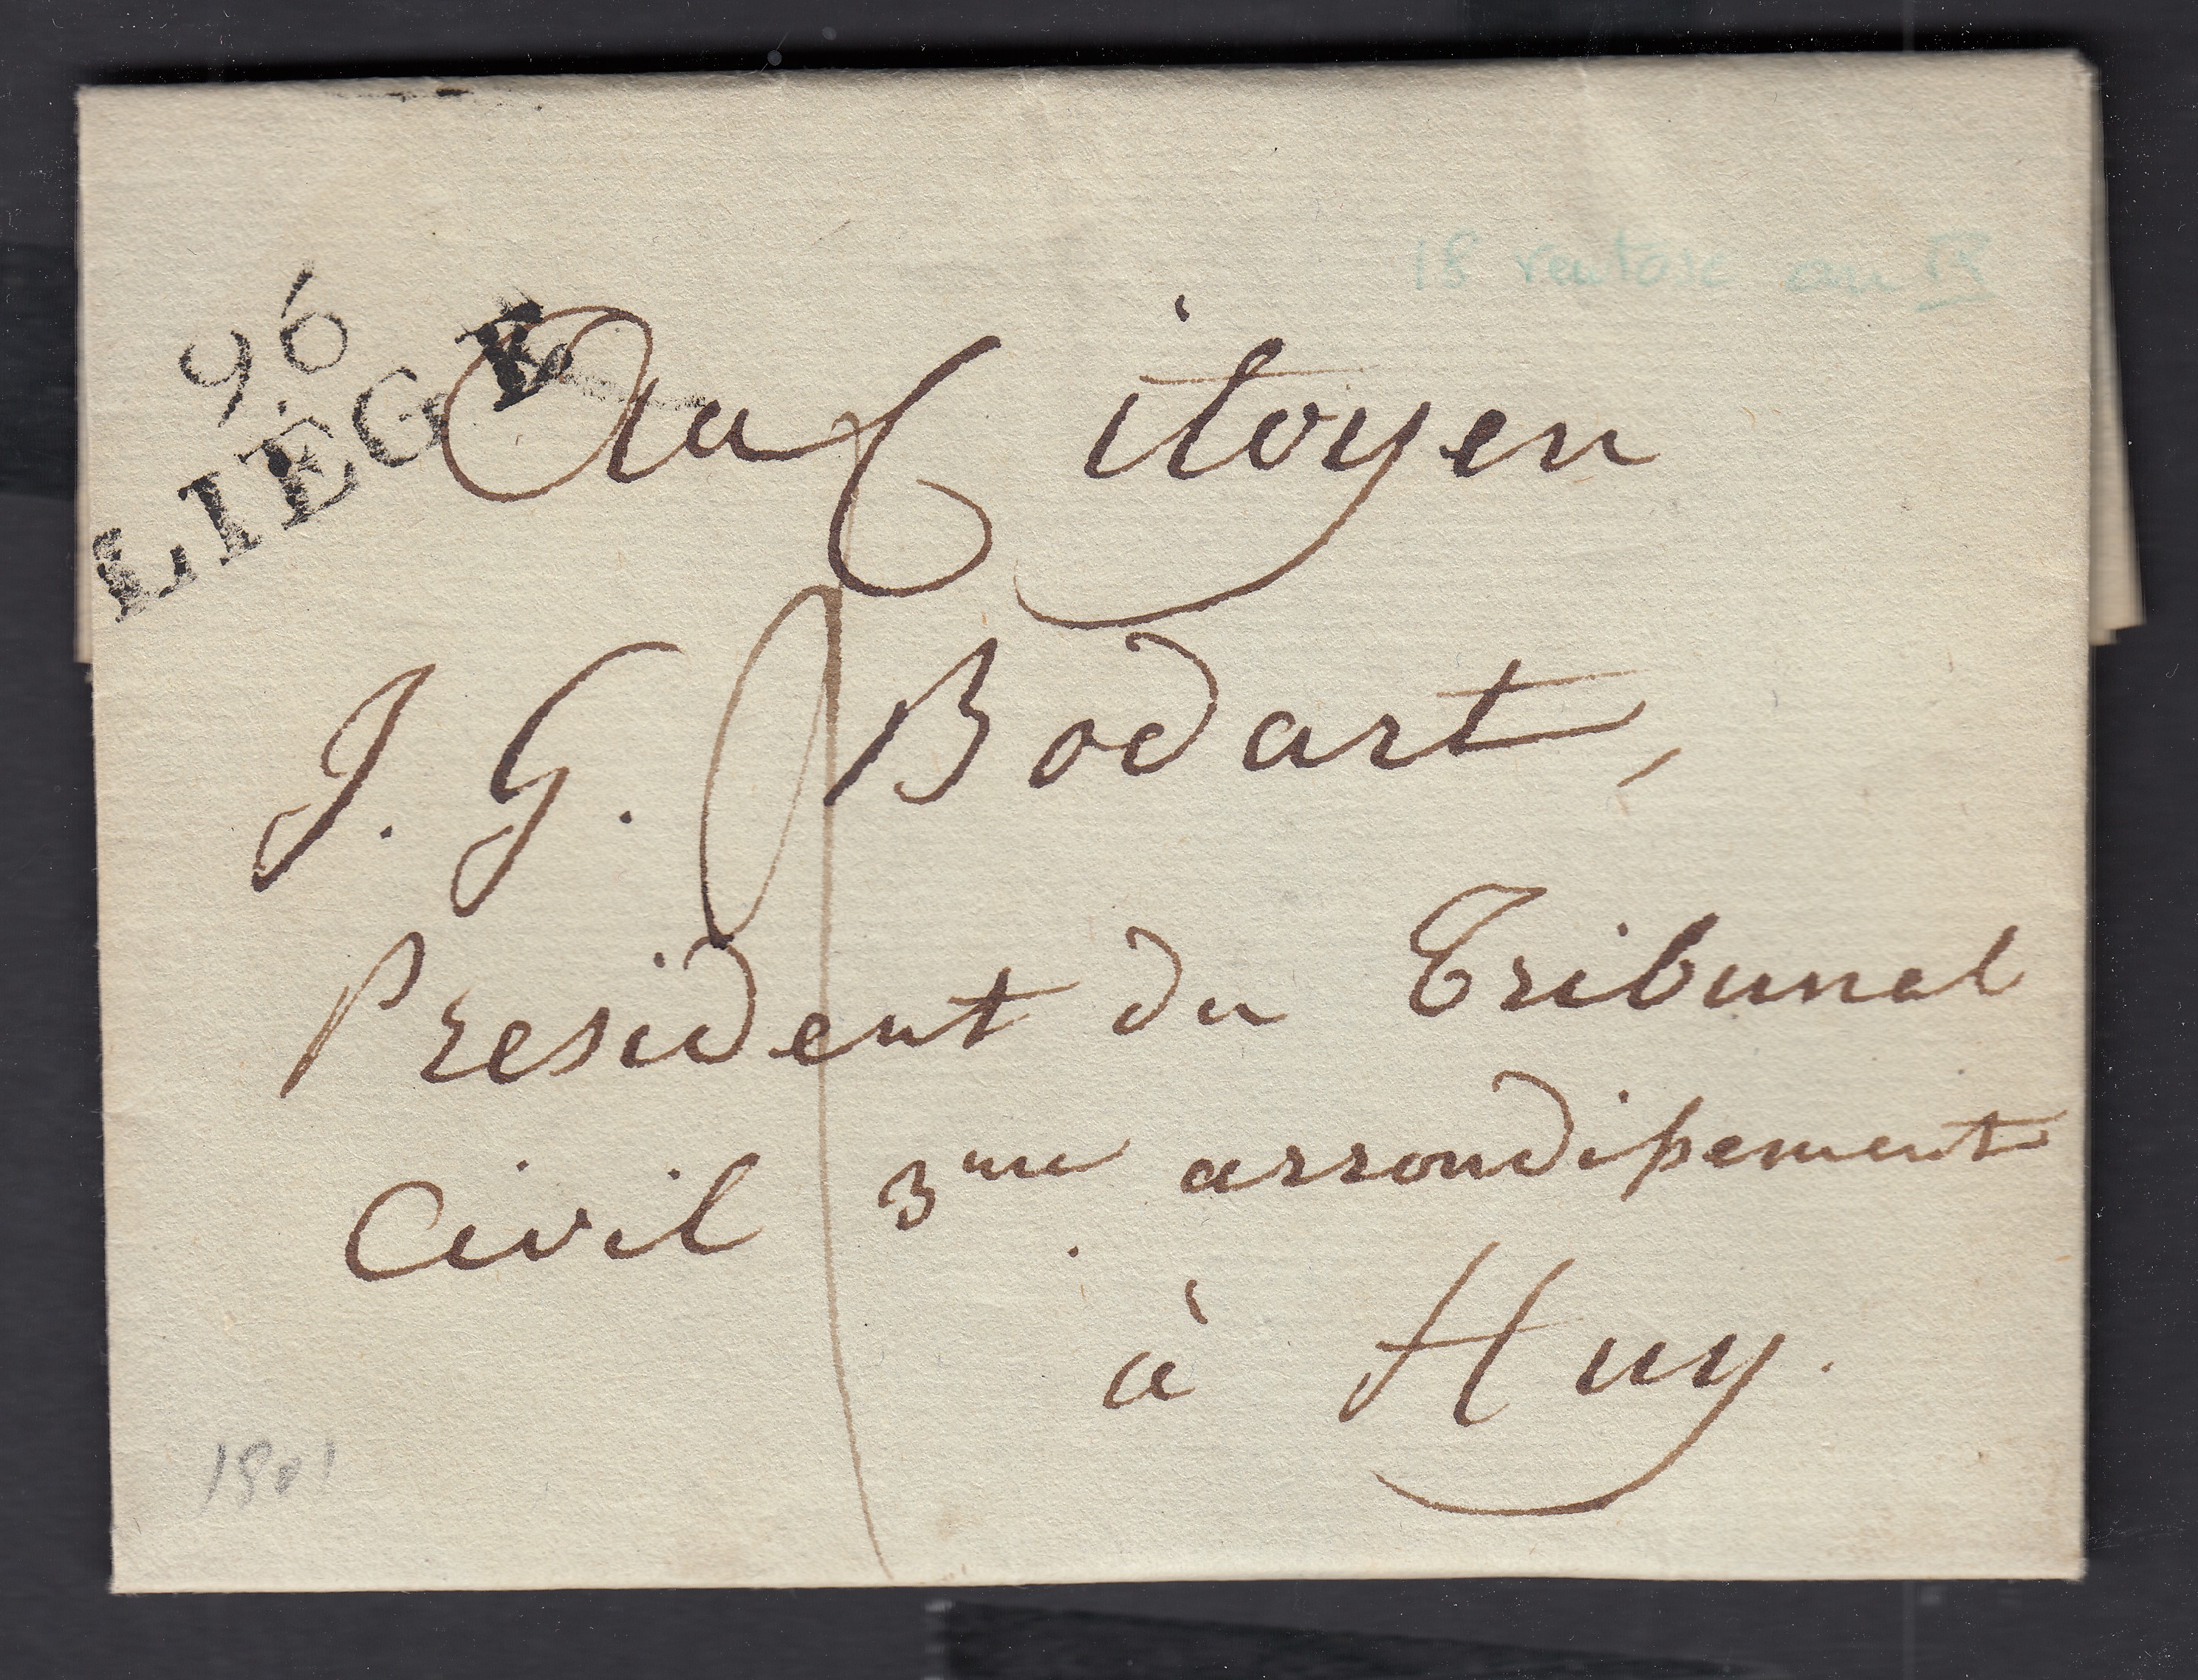 18 ventose an IX
96
LIÈGE
Au Citoyen
J. G. Bodart,
President du Tribunal
Civil 3me arrondissement
à Huy.
1801